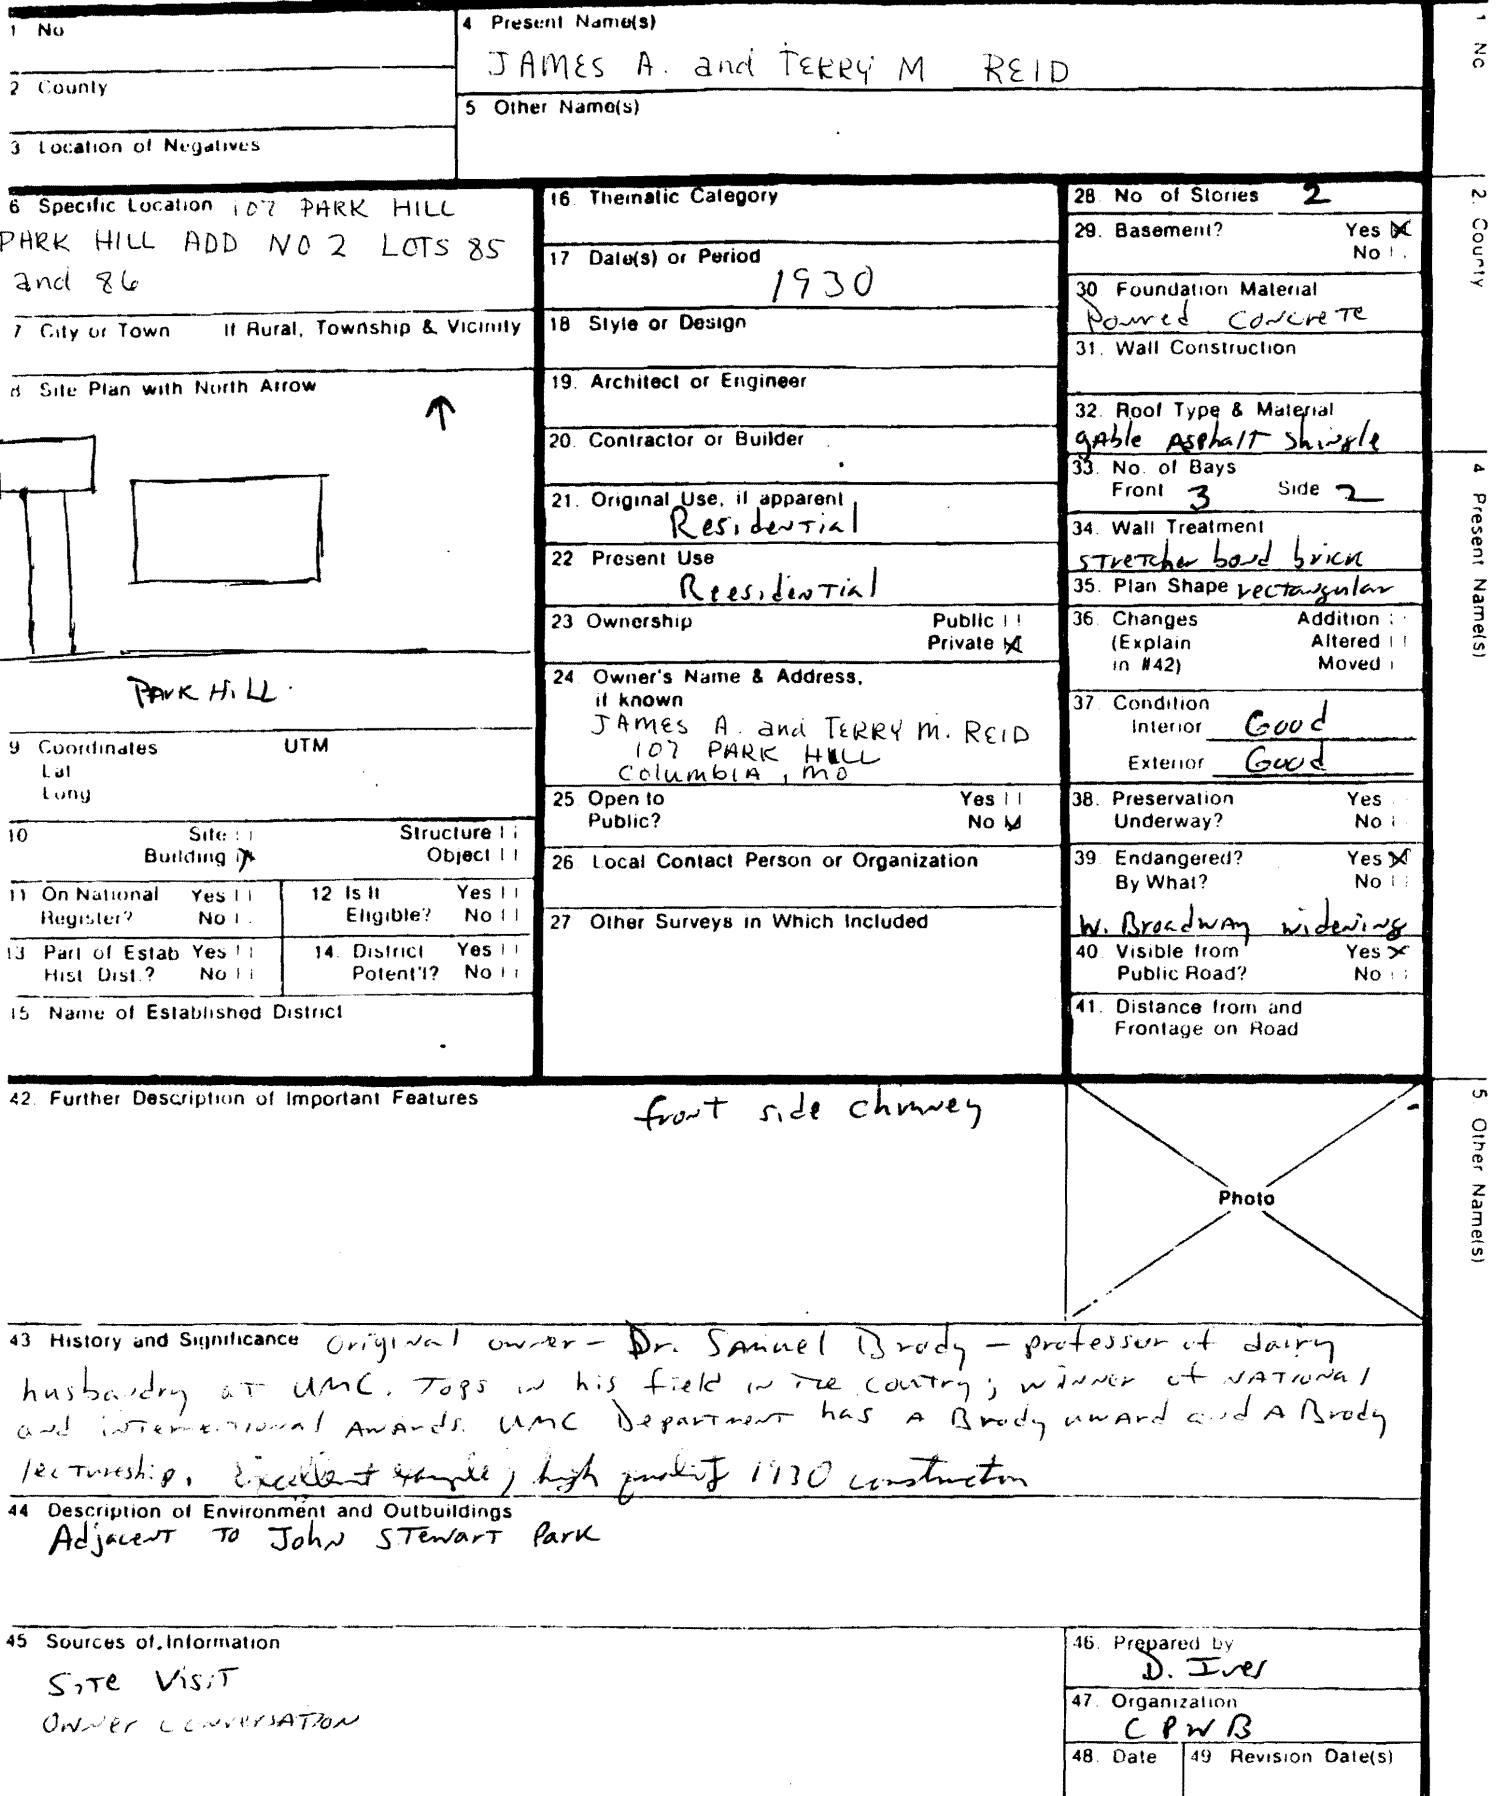 1 No
2 County
3 Location of Negatives
4 Present Name(s)
JAMES A. and TERRY M REID
5 Other Name(s)
6 Specific Location 107 PARK HILL
PARK HILL ADD NO 2 LOTS 85
and 86
7 City or Town If Rural, Township & Vicinity
8 Site Plan with North Arrow
PARK HILL.
9 Coordinates UTM
Lat
Long
10 Site Structure
Building Object
11 On National Yes
Register? No
12 Is It Yes
Eligible? No
13 Part of Estab Yes
Hist Dist.? No
14. District Yes
Potent'l? No
15 Name of Established District
16. Thematic Category
17 Date(s) or Period
1930
18 Style or Design
19. Architect or Engineer
20. Contractor or Builder
21. Original Use, if apparent
Residential
22 Present Use
Reesidential
23 Ownership Public
Private
24. Owner's Name & Address,
if known
JAMES A. and TERRY M. REID
107 PARK HILL
Columbia, MO
25. Open to Yes
Public? No
26. Local Contact Person or Organization
27 Other Surveys in Which Included
28. No of Stories 2
29. Basement? Yes
No
30 Foundation Material
Poured Concrete
31. Wall Construction
32. Roof Type & Material
gable Asphalt Shingle
33. No. of Bays
Front 3 Side 2
34. Wall Treatment
stretcher bond brick
35. Plan Shape rectangular
36. Changes Addition
(Explain Altered
in #42) Moved
37. Condition
Interior Good
Exterior Good
38. Preservation Yes
Underway? No
39. Endangered? Yes
By What? No
W. Broadway widening
40. Visible from Yes
Public Road? No
41. Distance from and
Frontage on Road
42. Further Description of Important Features front side chimney
Photo
43 History and Significance Original owner - Dr. Samuel Brody - professor of dairy
husbandry at UMC. Tops in his field in the country; winner of national
and international awards. UMC Department has a Brody award and a Brody
lectureship. Excellent example, high quality 1930 construction
44 Description of Environment and Outbuildings
Adjacent to John Stewart Park
45 Sources of Information
Site Visit
Owner conversation
46. Prepared by
D. Ives
47. Organization
CPWB
48. Date 49 Revision Date(s)
1 No
2. County
4 Present Name(s)
5 Other Name(s)